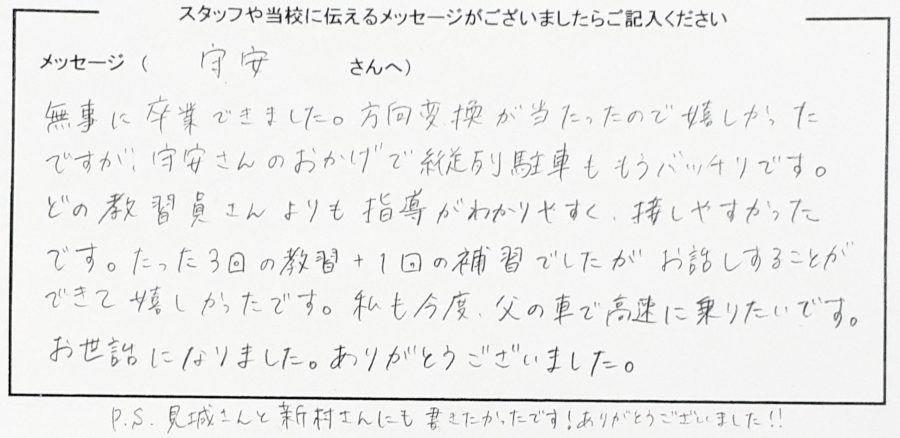 スタッフや当校に伝えるメッセージがございましたらご記入ください
メッセージ ( 守安 さんへ)
無事に卒業できました。方向変換が当たったので嬉しかった
ですが、守安さんのおかげで縦列駐車ももうバッチリです。
どの教習員さんよりも指導がわかりやすく、接しやすかった
です。たった3回の教習+1回の補習でしたがお話しすることが
できて嬉しかったです。私も今度、父の車で高速に乗りたいです。
お世話になりました。ありがとうございました。
P.S. 見城さんと新村さんにも書きたかったです!ありがとうございました!!